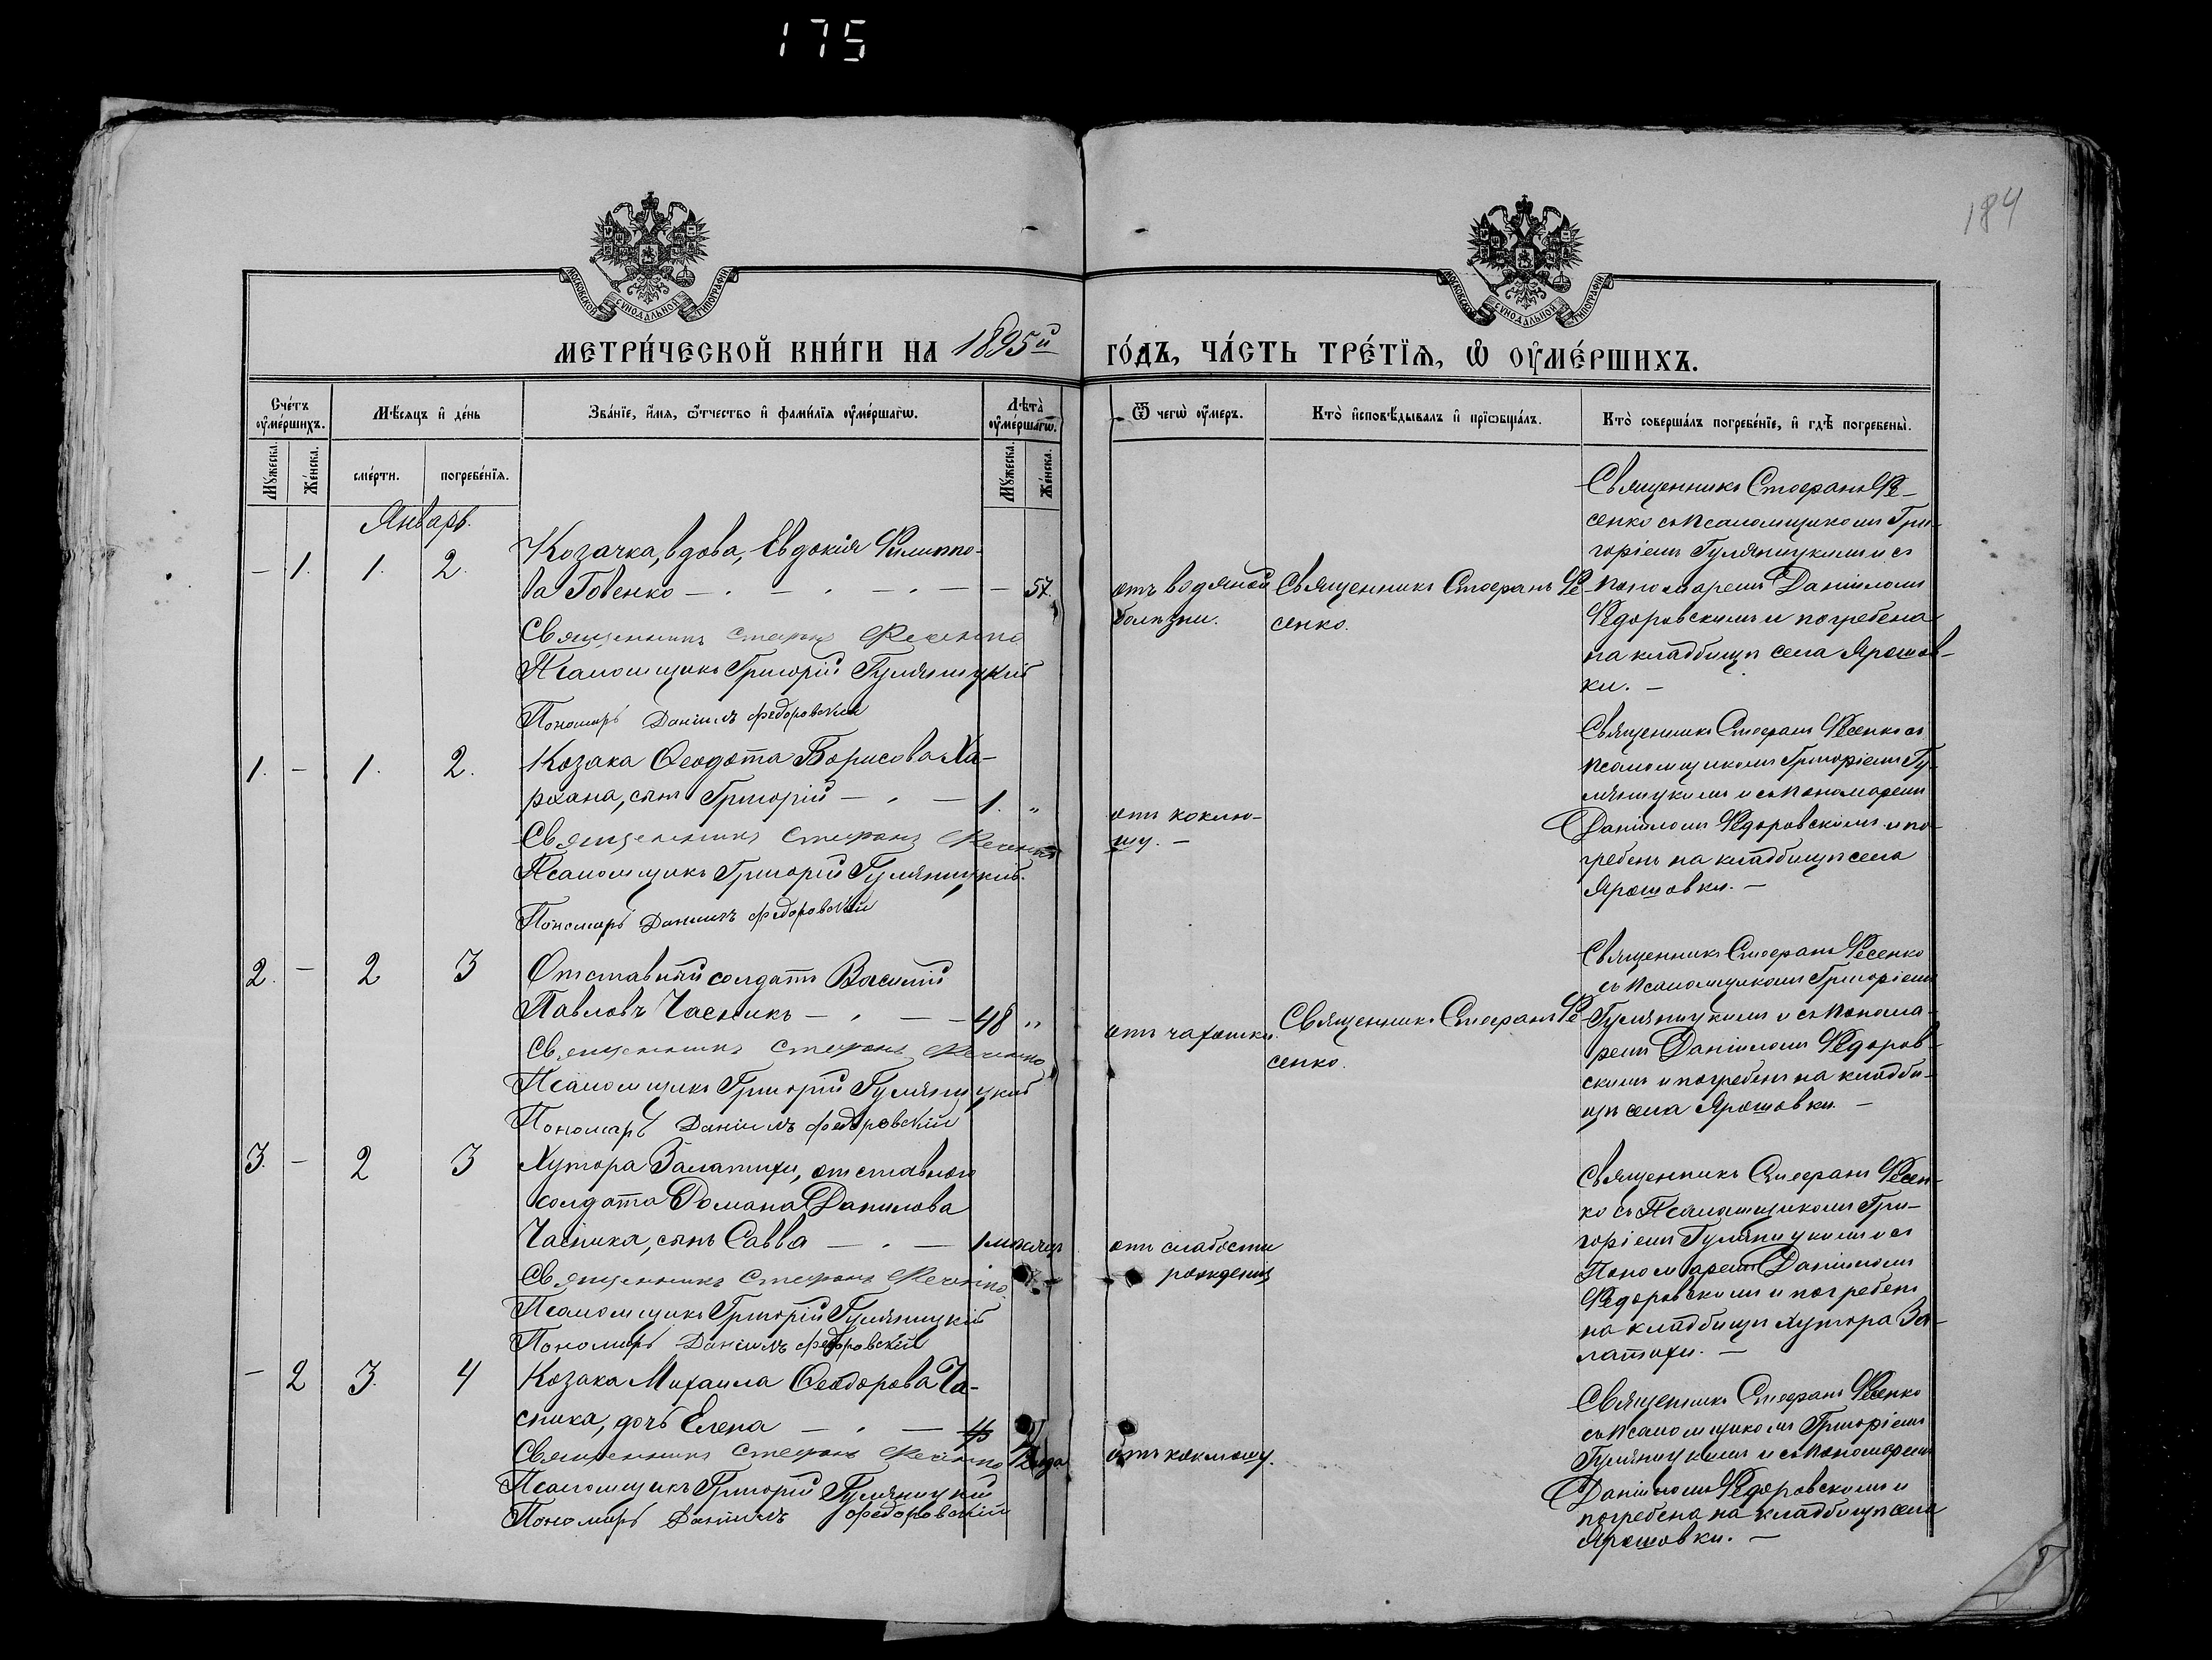 175
184
МОСКОВСКОЙ СѴНОДАЛЬНОЙ ТИПОГРАФІИ
МОСКОВСКОЙ СѴНОДАЛЬНОЙ ТИПОГРАФІИ
МЕТРИ́ЧЕСКОЙ КНИ́ГИ НА 1895й ГО́ДЪ, ЧА́СТЬ ТРЕ́ТІѦ, Ѡ҆ ОУ҆МЕ́РШИХЪ.
Сче́тъ оу҆ме́ршихъ.
Мѣ́сяцъ и҆ де́нь
Зва́нїе, и҆́мя, ѻ҆́тчество и҆ фами́лїя оу҆ме́ршагѡ.
Лѣта̀ оу҆ме́ршагѡ.
Ѿ чегѡ̀ оу҆́меръ.
Кто̀ и҆сповѣ́дывалъ и҆ прїѡбща́лъ.
Кто̀ соверша́лъ погребе́нїе, и҆ гдѣ̀ погребены̀.
Мꙋ́жеска.
Же́нска.
сме́рти.
погребе́нїя.
Мꙋ́жеска.
Же́нска.
Январь.
– 1. 1. 2.
Козачка, вдова, Евдокія Филиппо-
ва Говенко — 57.
Священникъ Стефанъ Фесенко
Псаломщикъ Григорій Гуляницкій
Пономарь Даніилъ Федоровскій
отъ водяной
болѣзни.
Священникъ Стефанъ Фе
сенко.
Священникъ Стефанъ Фе-
сенко съ псаломщикомъ Гри-
горіемъ Гуляницкимъ и съ
пономаремъ Даніиломъ
Федоровскимъ и погребена
на кладбищѣ села Ярошов-
ки. —
1. – 1. 2.
Козака Ѳеодота Борисова Ха-
рхана, сынъ Григорій — 1. "
Священникъ Стефанъ Фесенко
Псаломщикъ Григорій Гуляницкій.
Пономарь Даніилъ Федоровскій
отъ коклю-
шу. —
Священникъ Стефанъ Фесенко съ
псаломщикомъ Григоріемъ Гу-
ляницкимъ и съ пономаремъ
Даніиломъ Федоровскимъ и по-
гребенъ на кладбищѣ села
Ярошовки. —
2. – 2 3
Отставный солдатъ Василій
Павловъ Часникъ — 48 "
Священникъ Стефанъ Фесенко
Псаломщикъ Григорій Гуляницкій
Пономарь Даніилъ Федоровскій
отъ чахотки.
Священникъ Стефанъ Фе
сенко.
Священникъ Стефанъ Фесенко
съ псаломщикомъ Григоріемъ
Гуляницкимъ и съ понома-
ремъ Даніиломъ Федоров-
скимъ и погребенъ на кладби-
щѣ села Ярошовки. —
3. – 2 3
Хутора Залатихи, отставного
солдата Романа Данилова
Часника, сынъ Савва — 1 мѣсяцъ
Священникъ Стефанъ Фесенко.
Псаломщикъ Григорій Гуляницкій
Пономарь Даніилъ Федоровскій
отъ слабости
рожденія
Священникъ Стефанъ Фесен-
ко съ Псаломщикомъ Гри-
горіемъ Гуляницкимъ и съ
Пономаремъ Даніиломъ
Федоровскимъ и погребенъ
на кладбищѣ хутора За-
латихи. —
– 2 3. 4
Козака Михаила Ѳеодорова Ча-
сника, дочь Елена —
Священникъ Стефанъ Фесенко
Псаломщикъ Григорій Гуляницкій
Пономарь Даніилъ Федоровскій
отъ коклюшу.
Священникъ Стефанъ Фесенко
съ псаломщикомъ Григоріемъ
Гуляницкимъ и съ пономаремъ
Даніиломъ Федоровскимъ и
погребена на кладбищѣ села
Ярошовки. —